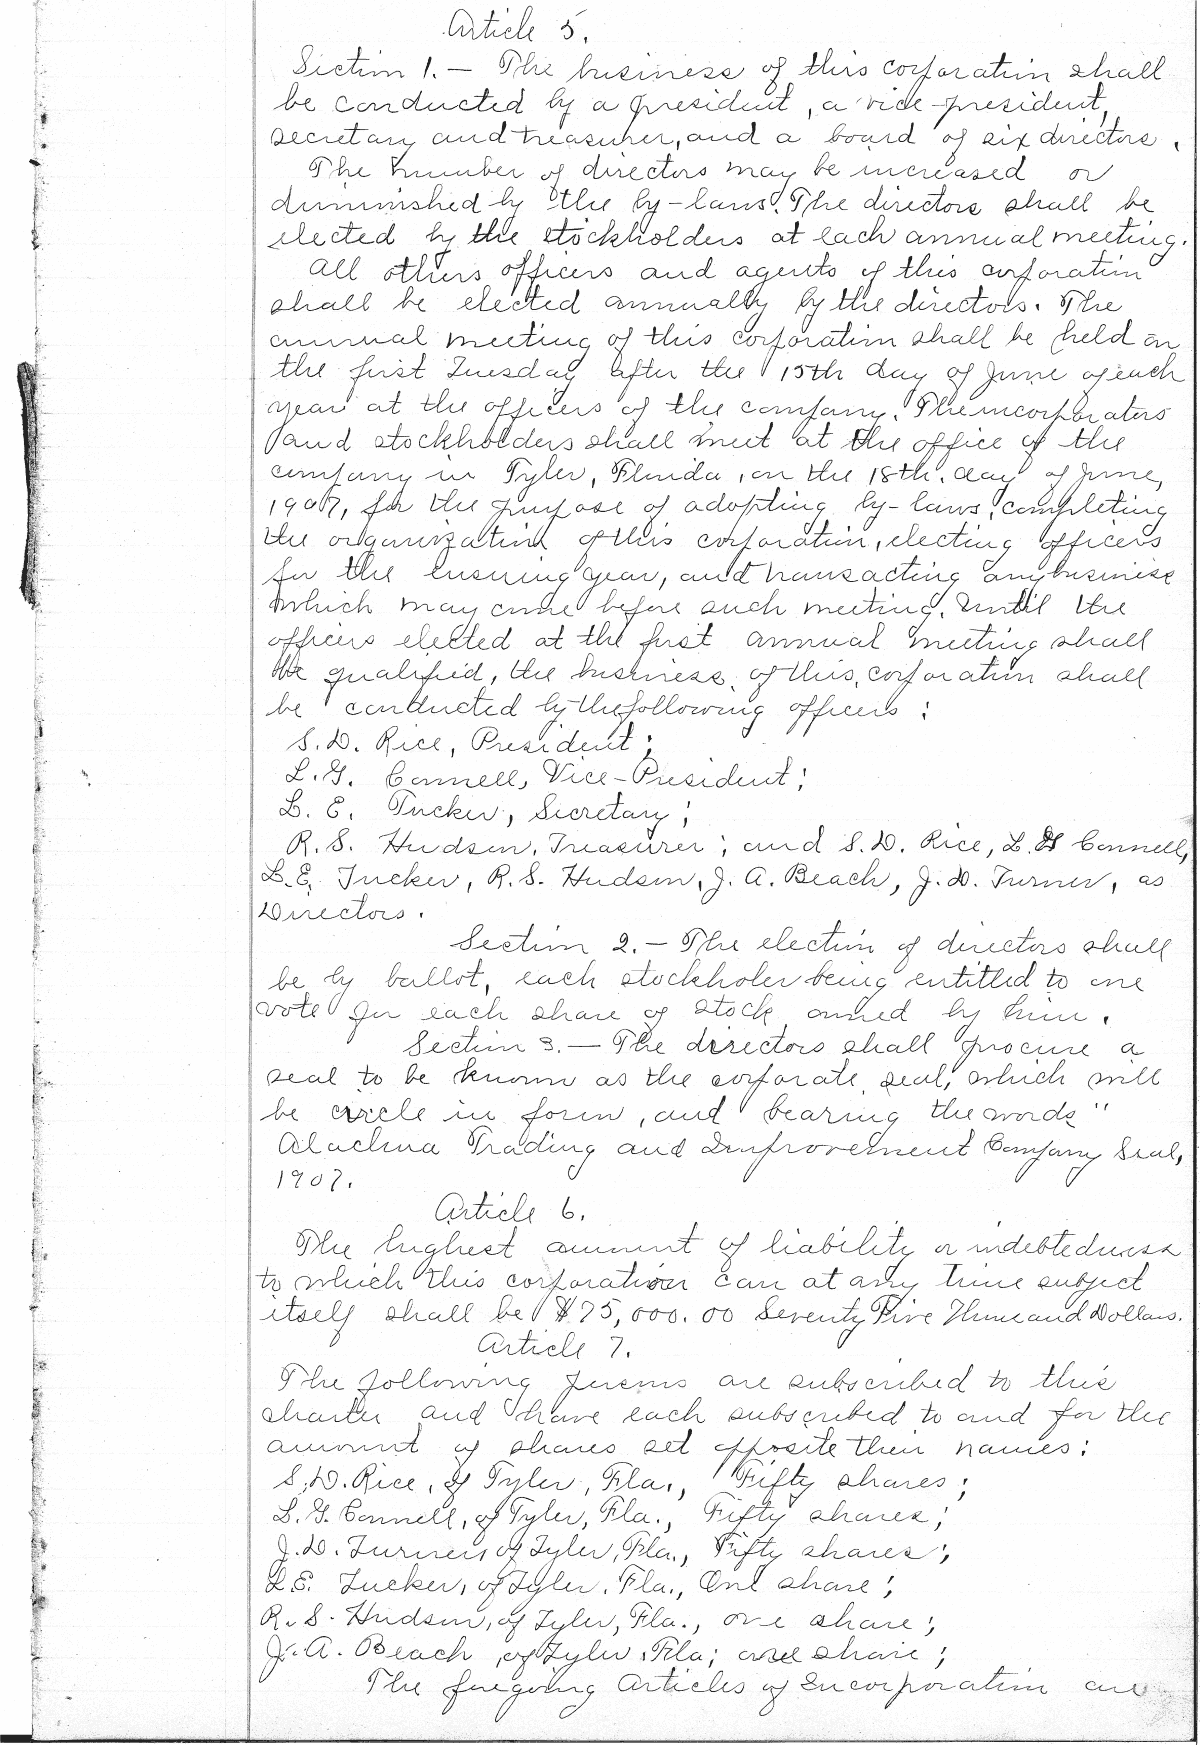 Article 5.
Section 1. — The business of this corporation shall
be conducted by a president, a vice-president,
secretary and treasurer, and a board of six directors.
The number of directors may be increased or
diminished by the by-laws. The directors shall be
elected by the stockholders at each annual meeting.
All others officers and agents of this corporation
shall be elected annually by the directors. The
annual meeting of this corporation shall be held on
the first Tuesday after the 15th day of June of each
year at the officers of the company. The incorporators
and stockholders shall meet at the office of the
company in Tyler, Florida, on the 18th. day of June,
1907, for the purpose of adopting by-laws, completing
the organization of this corporation, electing officers
for the ensuring year, and transacting any business
which may come before such meeting. Until the
officers elected at the first annual meeting shall
be qualified, the business of this corporation shall
be conducted by the following officers:
S. D. Rice, President;
L. G. Connell, Vice-President;
L. E. Tucker, Secretary;
R. S. Hudson, Treasurer; and S. D. Rice, L. G Connell,
L. E. Tucker, R. S. Hudson, J. A. Beach, J. D. Turner, as
Directors.
Section 2. — The election of directors shall
be by ballot, each stockholer being entitled to one
vote for each share of stock owned by him.
Section 3. — The directors shall procure a
seal to be known as the corporate seal, which will
be circle in form, and bearing the words "
Alachua Trading and Improvement Company Seal,
1907.
Article 6.
The highest amount of liability or indebtedness
to which this corporation can at any time subject
itself shall be $75,000.00 Seventy Five Thousand Dollars.
Article 7.
The following persons are subscribed to this
charter and have each subscribed to and for the
amount of shares set opposite their names:
S. D. Rice, of Tyler, Fla., Fifty shares;
L. G. Connell, of Tyler, Fla., Fifty shares;
J. D. Turner, of Tyler, Fla., Fifty shares;
L E. Tucker, of Tyler, Fla., One share;
R. S. Hudson, of Tyler, Fla., one share;
J. A. Beach, of Tyler, Fla; one share;
The foregoing Articles of Incorporation are